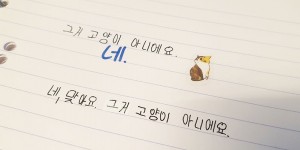 그게 고양이 아니에요.
네.
네, 맞아요. 그게 고양이 아니에요.